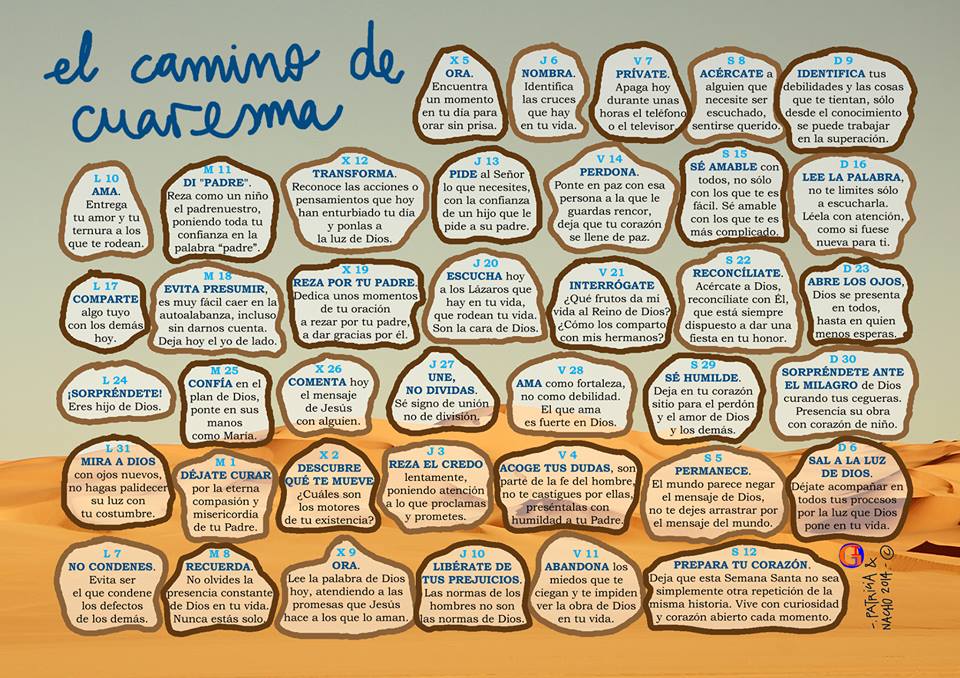 el camino de
cuaresma
X 5
ORA.
Encuentra
un momento
en tu día para
orar sin prisa.
J 6
NOMBRA.
Identifica
las cruces
que hay
en tu vida.
V 7
PRÍVATE.
Apaga hoy
durante unas
horas el teléfono
o el televisor.
S 8
ACÉRCATE a
alguien que
necesite ser
escuchado,
sentirse querido.
D 9
IDENTIFICA tus
debilidades y las cosas
que te tientan, sólo
desde el conocimiento
se puede trabajar
en la superación.
L 10
AMA.
Entrega
tu amor y tu
ternura a los
que te rodean.
M 11
DI "PADRE".
Reza como un niño
el padrenuestro,
poniendo toda tu
confianza en la
palabra “padre”.
X 12
TRANSFORMA.
Reconoce las acciones o
pensamientos que hoy
han enturbiado tu día
y ponlas a
la luz de Dios.
J 13
PIDE al Señor
lo que necesites,
con la confianza
de un hijo que le
pide a su padre.
V 14
PERDONA.
Ponte en paz con esa
persona a la que le
guardas rencor,
deja que tu corazón
se llene de paz.
S 15
SÉ AMABLE con
todos, no sólo
con los que te es
fácil. Sé amable
con los que te es
más complicado.
D 16
LEE LA PALABRA,
no te limites sólo
a escucharla.
Léela con atención,
como si fuese
nueva para ti.
L 17
COMPARTE
algo tuyo
con los demás
hoy.
M 18
EVITA PRESUMIR,
es muy fácil caer en la
autoalabanza, incluso
sin darnos cuenta.
Deja hoy el yo de lado.
X 19
REZA POR TU PADRE.
Dedica unos momentos
de tu oración
a rezar por tu padre,
a dar gracias por él.
J 20
ESCUCHA hoy
a los Lázaros que
hay en tu vida,
que rodean tu vida.
Son la cara de Dios.
V 21
INTERRÓGATE
¿Qué frutos da mi
vida al Reino de Dios?
¿Cómo los comparto
con mis hermanos?
S 22
RECONCÍLIATE.
Acércate a Dios,
reconcíliate con Él,
que está siempre
dispuesto a dar una
fiesta en tu honor.
D 23
ABRE LOS OJOS,
Dios se presenta
en todos,
hasta en quien
menos esperas.
L 24
¡SORPRÉNDETE!
Eres hijo de Dios.
M 25
CONFÍA en el
plan de Dios,
ponte en sus
manos
como María.
X 26
COMENTA hoy
el mensaje
de Jesús
con alguien.
J 27
UNE,
NO DIVIDAS.
Sé signo de unión
no de división.
V 28
AMA como fortaleza,
no como debilidad.
El que ama
es fuerte en Dios.
S 29
SÉ HUMILDE.
Deja en tu corazón
sitio para el perdón
y el amor de Dios
y los demás.
D 30
SORPRÉNDETE ANTE
EL MILAGRO de Dios
curando tus cegueras.
Presencia su obra
con corazón de niño.
L 31
MIRA A DIOS
con ojos nuevos,
no hagas palidecer
su luz con
tu costumbre.
M 1
DÉJATE CURAR
por la eterna
compasión y
misericordia
de tu Padre.
X 2
DESCUBRE
QUÉ TE MUEVE
¿Cuáles son
los motores
de tu existencia?
J 3
REZA EL CREDO
lentamente,
poniendo atención
a lo que proclamas
y prometes.
V 4
ACOGE TUS DUDAS, son
parte de la fe del hombre,
no te castigues por ellas,
preséntalas con
humildad a tu Padre.
S 5
PERMANECE.
El mundo parece negar
el mensaje de Dios,
no te dejes arrastrar por
el mensaje del mundo.
D 6
SAL A LA LUZ
DE DIOS.
Déjate acompañar en
todos tus procesos
por la luz que Dios
pone en tu vida.
L 7
NO CONDENES.
Evita ser
el que condene
los defectos
de los demás.
M 8
RECUERDA.
No olvides la
presencia constante
de Dios en tu vida.
Nunca estás solo.
X 9
ORA.
Lee la palabra de Dios
hoy, atendiendo a las
promesas que Jesús
hace a los que lo aman.
J 10
LIBÉRATE DE
TUS PREJUICIOS.
Las normas de los
hombres no son
las normas de Dios.
V 11
ABANDONA los
miedos que te
ciegan y te impiden
ver la obra de Dios
en tu vida.
S 12
PREPARA TU CORAZÓN.
Deja que esta Semana Santa no sea
simplemente otra repetición de la
misma historia. Vive con curiosidad
y corazón abierto cada momento.
-. PATRICIA &
NACHO 2014.- ©